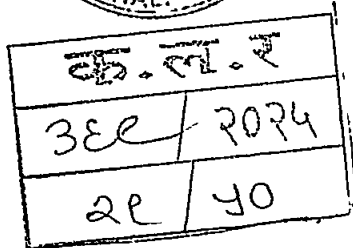 क.ल.र
३६९ / २०२५
२९ / ५०